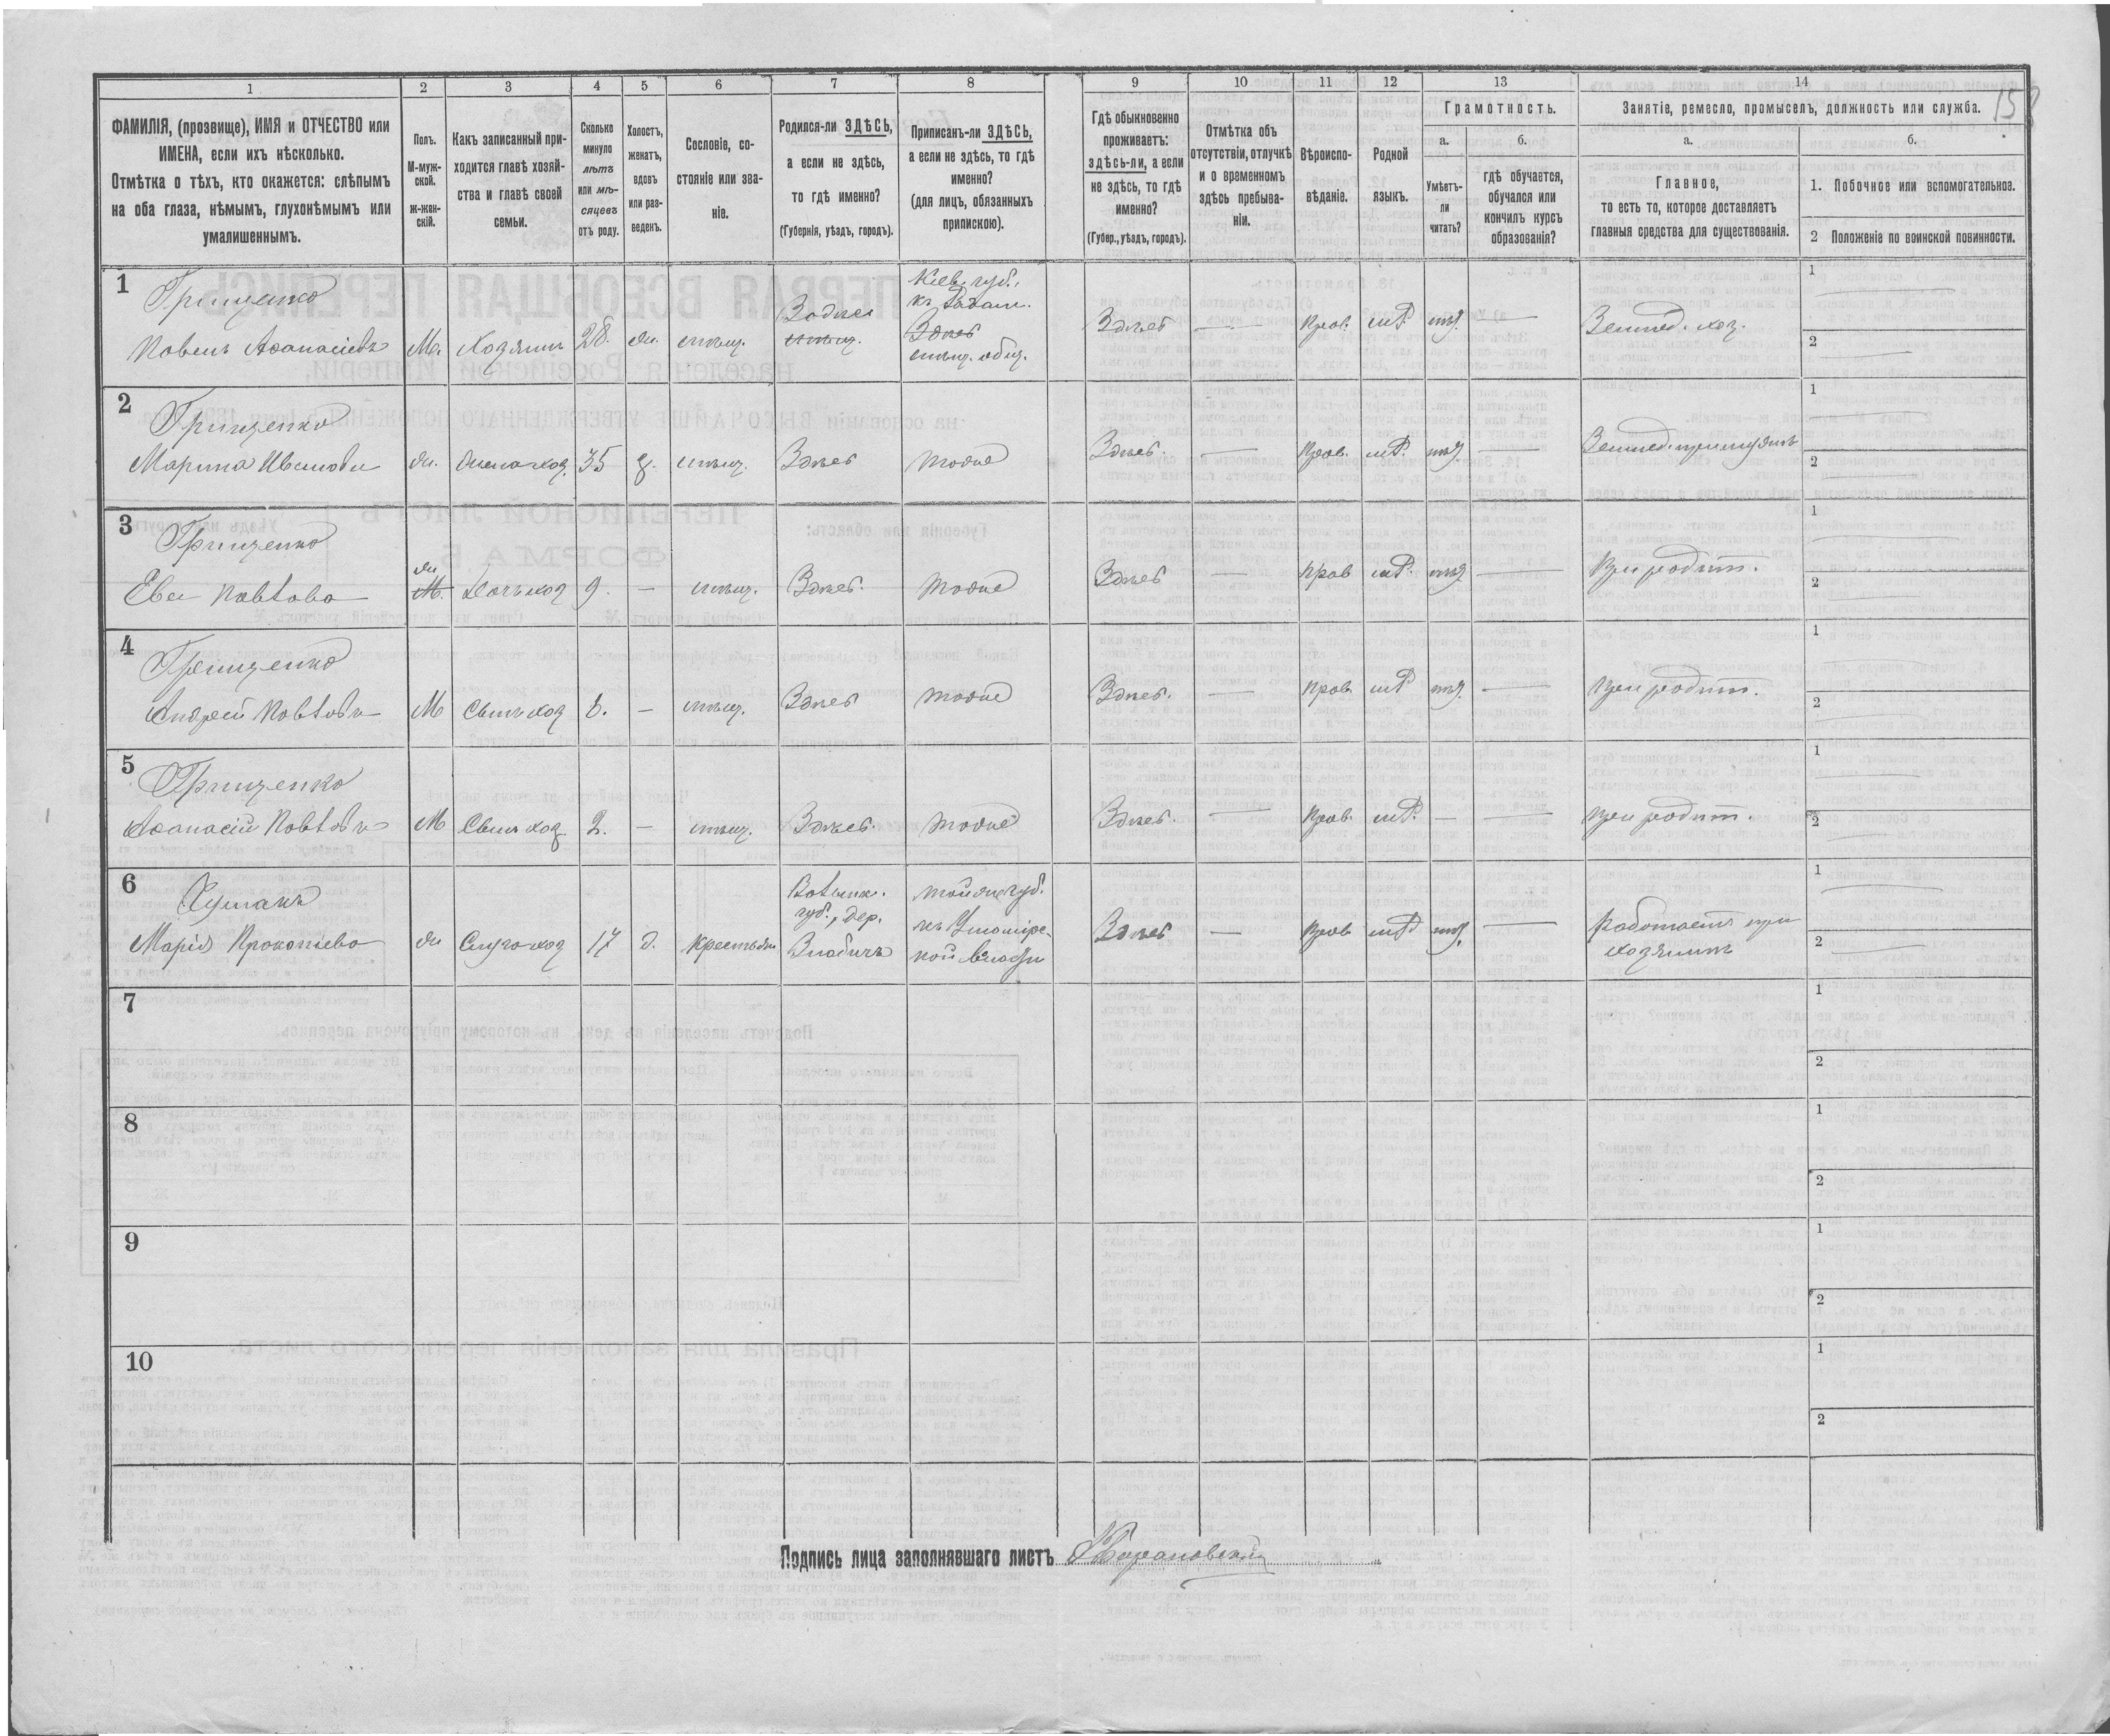 158
1
2
3
4
5
6
7
8
9
10
11
12
13
14
ФАМИЛІЯ, (прозвище), ИМЯ и ОТЧЕСТВО или
ИМЕНА, если ихъ нѣсколько.
Отмѣтка о тѣхъ, кто окажется: слѣпымъ
на оба глаза, нѣмымъ, глухонѣмымъ или
умалишеннымъ.
Полъ.
М-муж-
ской.
Ж-жен-
скій.
Какъ записанный при-
ходится главѣ хозяй-
ства и главѣ своей
семьи.
Сколько
минуло
лѣтъ
или мѣ-
сяцевъ
отъ роду.
Холостъ,
женатъ,
вдовъ
или раз-
веденъ.
Сословіе, со-
стояніе или зва-
ніе.
Родился-ли ЗДѢСЬ,
а если не здѣсь,
то гдѣ именно?
(Губернія, уѣздъ, городъ).
Приписанъ-ли ЗДѢСЬ,
а если не здѣсь, то гдѣ
именно?
(для лицъ, обязанныхъ
припискою).
Гдѣ обыкновенно
проживаетъ:
здѣсь-ли, а если
не здѣсь, то гдѣ
именно?
(Губер., уѣздъ, городъ).
Отмѣтка объ
отсутствіи, отлучкѣ
и о временномъ
здѣсь пребыва-
ніи.
Вѣроиспо-
вѣданіе.
Родной
языкъ.
Грамотность.
а.
Умѣетъ-
ли
читать?
б.
гдѣ обучается,
обучался или
кончилъ курсъ
образованія?
Занятіе, ремесло, промыселъ, должность или служба.
а.
Главное,
то есть то, которое доставляетъ
главныя средства для существованія.
б.
1. Побочное или вспомогательное.
2 Положеніе по воинской повинности.
1
Грищенко
Павелъ Аѳанасіевъ
М.
Хозяинъ
28.
ж.
мѣщ.
Здѣсь
Кіев. губ.
Здѣсь
мѣщ. общ.
Здѣсь
—
Прав.
—
Землед. хоз.
1
2
2
Грищенко
Марина Иванова
ж.
жена хоз.
35
з.
мѣщ.
Здѣсь
тоже
Здѣсь.
—
Прав.
—
1
2
3
Грищенко
Ева Павлова
ж
М.
Дочь хоз
9.
—
мѣщ.
Здѣсь.
тоже
Здѣсь
—
прав
—
При родит.
1
2
4
Грищенко
Андрей Павловъ
М
Сынъ хоз
8.
—
мѣщ.
Здѣсь
тоже
Здѣсь.
—
прав.
—
При родит.
1
2
5
Грищенко
Аѳанасій Павловъ
М
Сынъ хоз
2.
—
мѣщ.
Здѣсь.
тоже
Здѣсь.
—
Прав.
—
—
При родит.
1
2
6
Марія Прокопіева
ж
хоз
17
д.
Крестьян
Волынс.
губ., дер.
той же губ.
Здѣсь
—
Прав
—
Работаетъ при
хозяинѣ
1
2
7
1
2
8
1
2
9
1
2
10
1
2
Подпись лица заполнявшаго листъ